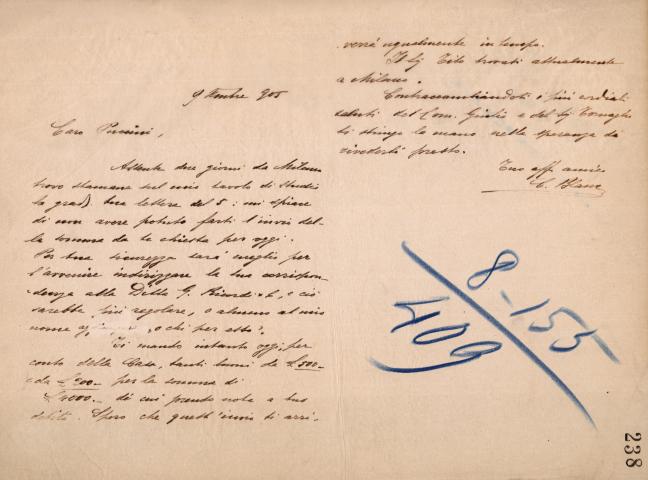 9 ttembre 905
Caro Puccini,
Assente due giorni da Milano
trovo stamane sul mio tavolo di studio
la grad. tua lettera del 5: mi spiace
di non avere potuto farti l'invio del-
la somma da te chiesta per oggi.
Per tua sicurezza sarà meglio per
l'avvenire indirizzare la tua corrispon-
denza alla Ditta G. Ricordi & C., e ciò
sarebbe più regolare, o almeno al mio
nome o chi per esso.
Ti mando intanto oggi, per
conto della Casa, tanti buoni da £ 500 -
da £ - per la somma di
£ 4000. - di cui prendo nota a tuo
debito. Spero che quest'invio ti arri-
verrà ugualmente in tempo.
Il Sig Tito trovasi attualmente
a Milano.
Contraccambiandoti i più cordiali
saluti del Com. Giulio e del Sig Tornaghi
ti stringo la mano nella speranza di
rivederti presto.
Tuo aff. amico
C. Blanc
8-155
409
238